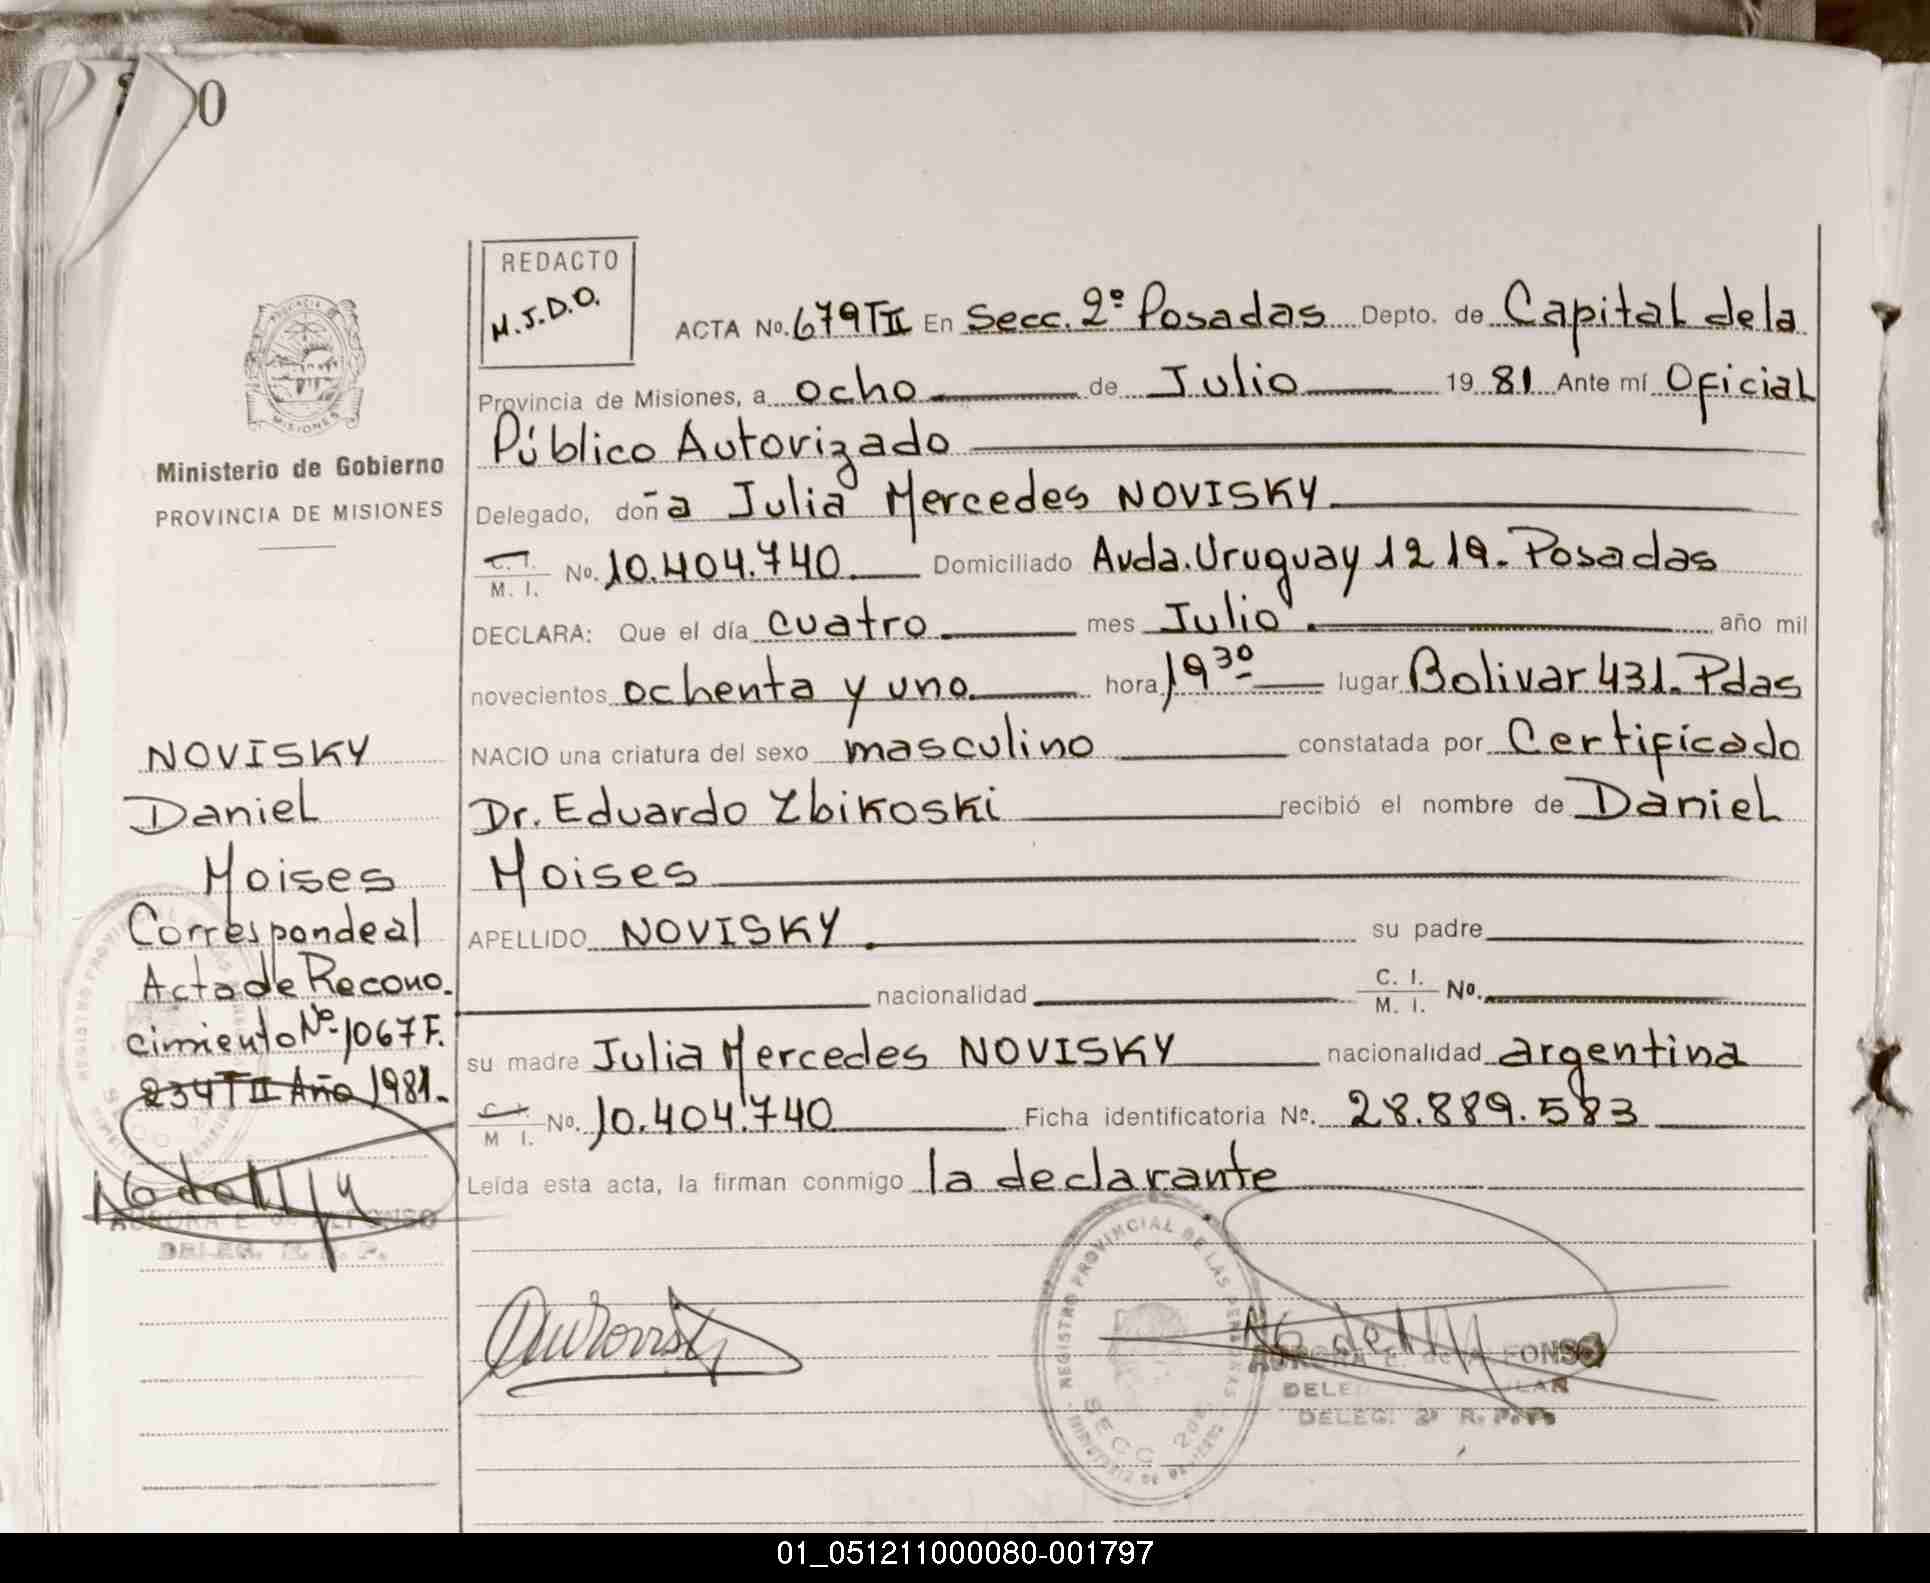 0
REDACTO
M.J.D.O.
ACTA No. 679 T II En Secc. 2º Posadas Depto. de Capital de la
Provincia de Misiones, a ocho de Julio 19 81 Ante mí Oficial
Público Autorizado
Delegado, doña Julia Mercedes NOVISKY
C. I.
M. I. No. 10.404.740 Domiciliado Avda. Uruguay 1219. Posadas
DECLARA: Que el día cuatro mes Julio año mil
novecientos ochenta y uno hora 19 30 lugar Bolivar 431. Pdas
NACIO una criatura del sexo masculino constatada por Certificado
Dr. Eduardo Zbikoski recibió el nombre de Daniel
Moises
APELLIDO NOVISKY su padre
nacionalidad C. I.
M. I. No.
su madre Julia Mercedes NOVISKY nacionalidad argentina
C. I.
M I. No. 10.404.740 Ficha identificatoria No. 28.889.583
Leída esta acta, la firman conmigo la declarante
PROVINCIA
MISIONES
Ministerio de Gobierno
PROVINCIA DE MISIONES
NOVISKY
Daniel
Moises
Corresponde al
Acta de Recono.
cimiento Nº 1067 F.
234 T II Año 1981.
AURORA E. de ALFONSO
DELEG. R. P.
REGISTRO PROVINCIAL DE LAS PERSONAS
SECC 2da
AURORA E. de ALFONSO
DELEG. 2ª R. P. P.
01_051211000080-001797